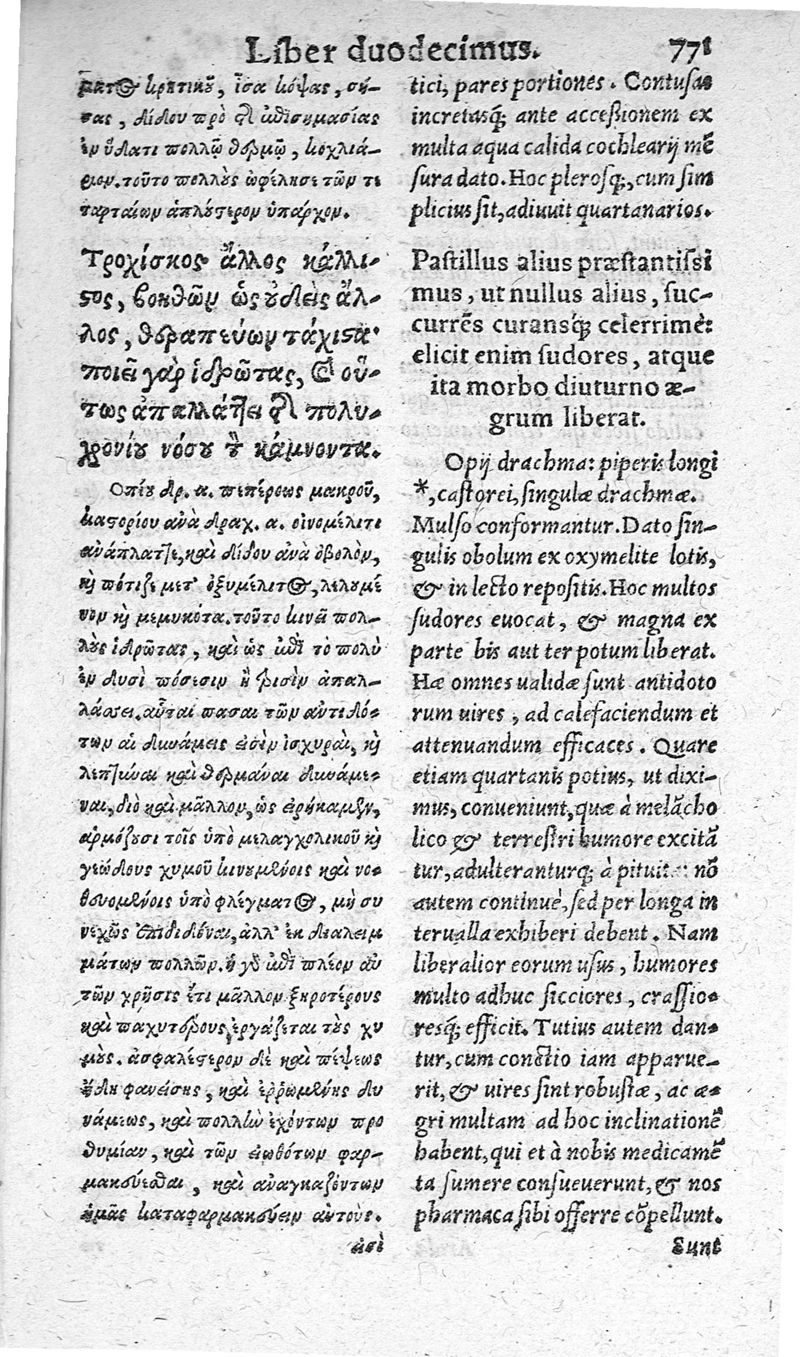 Liber duodecimus. 771
ματος κρητικοῦ, ἶσα κόψας, σή-
σας, δίδου πρὸ τῆς ἐπισημασίας
ἐν ὕδατι πολλῷ θερμῷ, κοχλιά-
ριον. τοῦτο πολλοὺς ὠφέλησε τῶν τε
ταρταίων ἁπλούστερον ὑπάρχον.
Τροχίσκος ἄλλος κάλλι-
στος, βοηθῶν ὡς οὐδεὶς ἄλ-
λος, θεραπεύων τάχιστα·
ποιεῖ γὰρ ἱδρῶτας, καὶ οὕ-
τως ἀπαλλάττει τῆς πολυ-
χρονίου νόσου τὸν κάμνοντα.
Οπίου δρ. α. πεπέρεως μακροῦ,
καστορίου ἀνὰ δραχ. α. οἰνομέλιτι
ἀνάπλαττε, καὶ δίδου ἀνὰ ὀβολὸν,
καὶ πότιζε μετ' ὀξυμέλιτος, λελουμέ
νον καὶ μεμυκότα. τοῦτο κινεῖ πολ-
λοὺς ἱδρῶτας, καὶ ὡς ἐπὶ τὸ πολὺ
ἐν δυσὶ πόσεσιν ἢ τρισὶν ἀπαλ-
λάσσει. αὗται πᾶσαι τῶν ἀντιδό-
των αἱ δυνάμεις εἰσὶν ἰσχυραὶ, καὶ
λεπτῦναι καὶ θερμᾶναι δυνάμε-
ναι, διὸ καὶ μᾶλλον, ὡς εἰρήκαμεν,
ἁρμόζουσι τοῖς ὑπὸ μελαγχολικοῦ καὶ
γεώδους χυμοῦ κινουμένοις καὶ νο-
θευομένοις ὑπὸ φλέγματος, μὴ συ
νεχῶς ἐπιδιδόναι, ἀλλ' ἐκ διαλειμ
μάτων πολλῶν. ἡ γὰρ ἐπὶ πλέον αὐ
τῶν χρῆσις ἔτι μᾶλλον ξηροτέρους
καὶ παχυτέρους ἐργάζεται τοὺς χυ
μούς. ἀσφαλέστερον δὲ καὶ πέψεως
ἤδη φανείσης, καὶ ἐρρωμένης δυ
νάμεως, καὶ πολλὴν ἐχόντων προ
θυμίαν, καὶ τῶν εἰωθότων φαρ-
μακεύεσθαι, καὶ ἀναγκαζόντων
ἡμᾶς καταφαρμακεύειν αὐτούς.
εἰσὶ
tici, pares portiones. Contusas
incretasq́; ante accessionem ex
multa aqua calida cochlearij mẽ
sura dato. Hoc plerosq;, cum sim
plicius sit, adiuuit quartanarios.
Pastillus alius præstantissi
mus, ut nullus alius, suc-
currẽs curansq́; celerrimè:
elicit enim sudores, atque
ita morbo diuturno æ-
grum liberat.
Opij drachma: piperis longi
*, castorei, singulæ drachmæ.
Mulso conformantur. Dato sin-
gulis obolum ex oxymelite lotis,
& in lecto repositis. Hoc multos
sudores euocat, & magna ex
parte bis aut ter potum liberat.
Hæ omnes ualidæ sunt antidoto
rum uires, ad calefaciendum et
attenuandum efficaces. Quare
etiam quartanis potius, ut dixi-
mus, conueniunt, quæ à melãcho
lico & terrestri humore excitã
tur, adulteranturq; à pituita: nõ
autem continuè, sed per longa in
terualla exhiberi debent. Nam
liberalior eorum usus, humores
multo adhuc sicciores, crassio-
resq́; efficit. Tutius autem dan-
tur, cum conctio iam apparue-
rit, & uires sint robustæ, ac æ-
gri multam ad hoc inclinationẽ
habent, qui et à nobis medicamẽ
ta sumere consueuerunt, & nos
pharmaca sibi offerre cõpellunt.
Sunt